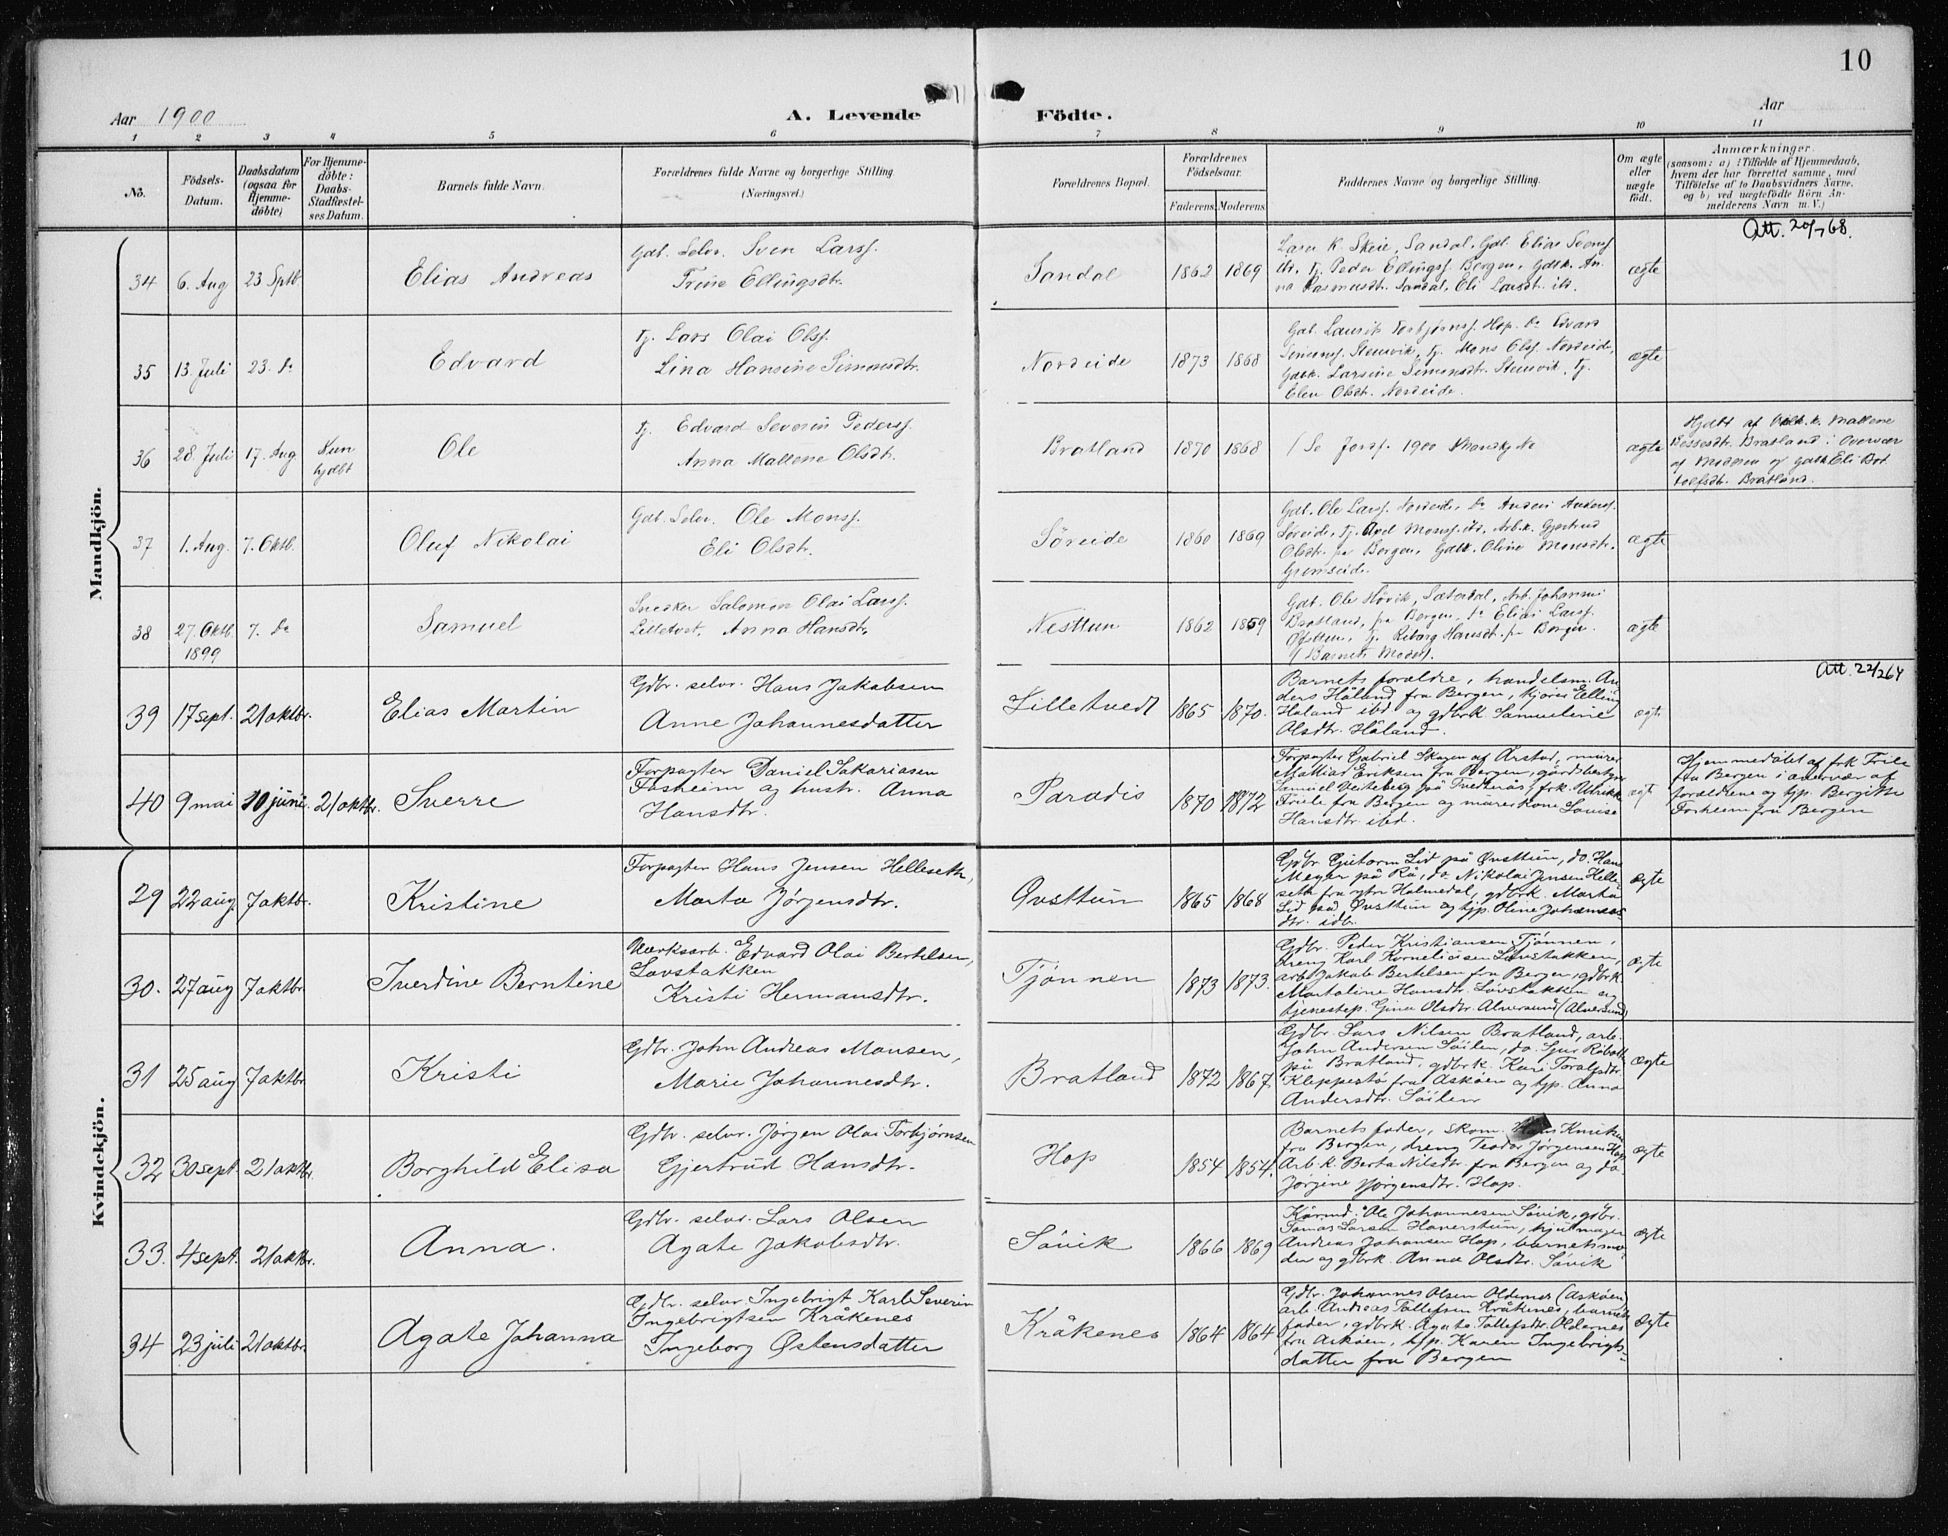 10
Aar 1900
A. Levende
Födte.
Aar
1 2 3 4 5 6 7 8 9 10 11
No.
Födsels-
Datum.
Daabsdatum
(ogsaa for
Hjemme-
döbte)
For Hjemme-
döbte:
Daabs-
Stadfæstel-
ses Datum.
Barnets fulde Navn.
Forældrenes fulde Navne og borgerlige Stilling
(Næringsvei.)
Forældrenes Bopæl.
Forældrenes
Födselsaar.
Faderens. Moderens.
Faddernes Navne og borgerlige Stilling.
Om ægte
eller
uægte
födt.
Anmærkninger.
(saasom: a) i Tilfælde af Hjemmedaab,
hvem der har forrettet samme, med
Tilföielse af to Daabsvidners Navne,
og b) ved uægtefödte Börn An-
melderens Navn m. V.)
Mandkjön.
Att. 20/7 68.
34 6. Aug 23 Sptb. Elias Andreas
Gdb. Selv. Sven Larss.
Trine Ellingsdtr.
Sandal 1862 1869
Lars K. Skeie, Sandal, Gdb. Elias Svens.
itr, Tj. Peder Ellingss. Bergen, Gdbk. An-
na Rasmusdtr. Sandal, Eli Larsdtr. itr.
ægte
35 13. Juli 23. Do Edvard
Tj. Lars Olai Olss.
Lina Hansine Simonsdtr.
Nordeide 1873 1868
Gdb. Laurits Torbjørnss. Hop. Do Edvard
Simonss. Stensvik, Tj. Mons Olss. Nordeide,
Gdbk. Larsine Simonsdtr. Stensvik, Tj.
Elen Olsdtr. Nordeide.
ægte
36 28. Juli 17. Aug Kun
hjdbt
Ole
Tj. Edvard Severin Pederss.
Anna Mallene Olsdtr.
Bratland 1870 1868
/ Se Jords. 1900 Mandkj No
ægte
Hjdbt af Gdbk. Mallene
Bessesdtr. Bratland i Overvær
af Moderen og Gdbk Eli Bot
tolfsdtr. Bratland.
37 1. Aug. 7. Oktb. Oluf Nikolai
Gdb. Selv. Ole Monss.
Eli Olsdtr.
Søreide 1860 1869
Gdb. Ole Larss. Nordeide, Do Anders Anderss.
Søreide, Tj. Axel Monss. itr, Arb.k. Gjertrud
Olsdtr. fra Bergen, Gdbk. Oline Monsdtr.
Grimseide.
ægte
38 27. Oktb.
1899
7. Do Samuel
Snedker Salomon Olai Larss.
Lilletvet, Anna Hansdtr.
Nesttun 1862 1869
Gdb. Ole Høvik, Sæterdal, Arb. Johannes
Bratland, fra Bergen, Do Elias Larss.
Øvsttun, Tj. Reborg Hansdtr. fra Bergen
Barnets Moder.
ægte
Att. 22/2 64
39 17 sept. 21 oktbr. Elias Martin
Gdbr. selv. Hans Jakobsen
Anne Johannesdatter
Lilletvedt 1865 1870.
Barnets forældre, handelsm. An-
ders Håland fra Bergen, kjører Elling
Håland ibd og gdbrk Samueline
Olsdtr. Håland.
ægte
40 9 mai 10 juni. 21 oktbr. Sverre
Forpagter Daniel Sakariasen
Fosheim og hustr. Anna
Hansdtr.
Paradis 1870 1872
Forpagter Gabriel Skagen af Årstad, murer
Mathias Eriksen fra Bergen, gårdsbestyrer
Samuel Vesteberg på Tvedterås, frk. Ulrikke
Friele fra Bergen og murerkone Lovise
Hansdtr. ibd.
ægte
Hjemmedöbt af frk Friele
fra Bergen i overvær af
forældrene og tjp. Bergitte
Fosheim fra Bergen
Kvindekjön.
29 22 aug. 7 oktbr. Kristine
Forpagter Hans Jensen Helleseth,
Marta Jørgensdtr.
Øvsttun 1865 1868
Gdbr Gutorm Lid på Øvsttun, do. Hans
Meyer på Rå, do. Nikolai Jensen Helle-
seth fra ytre Holmedal, gdbrk. Marta
Lid på Øvsttun og tjp. Oline Johannes
dtr. idb.
ægte
30. 27 aug 7 oktbr. Iverdine Berntine
Værksarb. Edvard Olai Bertelsen,
Løvstakken
Kristi Hermansdtr.
Tjønnen 1873 1873.
Gdbr. Peder Kristiansen Tjønnen,
dreng Karl Korneliusen Løvstakken,
arb. Jakob Bertelsen fra Bergen, gdbrk.
Martoline Hansdtr. Løvstakken og
tjenestep. Gina Olsdtr. Alversund (Alversund)
ægte
31 25 aug 7 oktbr. Kristi
Gdbr. John Andreas Monsen,
Marie Johannesdtr.
Bratland 1872 1867.
Gdbr. Lars Nilsen Bratland, arb.
John Andersen Söilen, do. Gur Råbalt
på Bratland, gdbrk. Kari Toralfsdtr.
Kleppestö fra Askøen og tjp. Anna
Andersdtr. Söilen
ægte
32 30 sept. 21 oktbr. Borghild Elisa
Gdbr. selv. Jørgen Olai Torbjørnsen
Gjertrud Hansdtr.
Hop 1854 1854.
Barnets fader, skom. Hans
fra Bergen, dreng Teodor Jørgensen Hop
Arb.k. Berta Nilsdtr. fra Bergen og do
Jørgine Jørgensdtr. Hop.
ægte
33. 4 sept. 21 oktbr. Anna.
Gdbr. selv. Lars Olsen
Agate Jakobsdtr.
Søvik 1866 1869
Kårmd. Ole Johannesen Søvik, gdbr.
Tomas Larsen Haverstun, hjulmager
Andreas Johansen Hop, barnets mo-
der og gdbrk. Anna Olsdtr. Søvik
ægte
34 23 juli 21 oktbr. Agate Johanna
Gdbr. selv. Ingebrigt Karl Severin
Ingebrigtsen Kråkenes
Ingeborg Østensdatter
Kråkenes 1864 1864
Gdbr. Johannes Olsen Oldernes (Askøen)
arb Andreas Tollefsen Kråkenes, barnets
fader, gdbrk. Agate Tollefsdtr. Oldernes
fra Askøen, tjp. Karen Ingebrigts-
datter fra Bergen
ægte